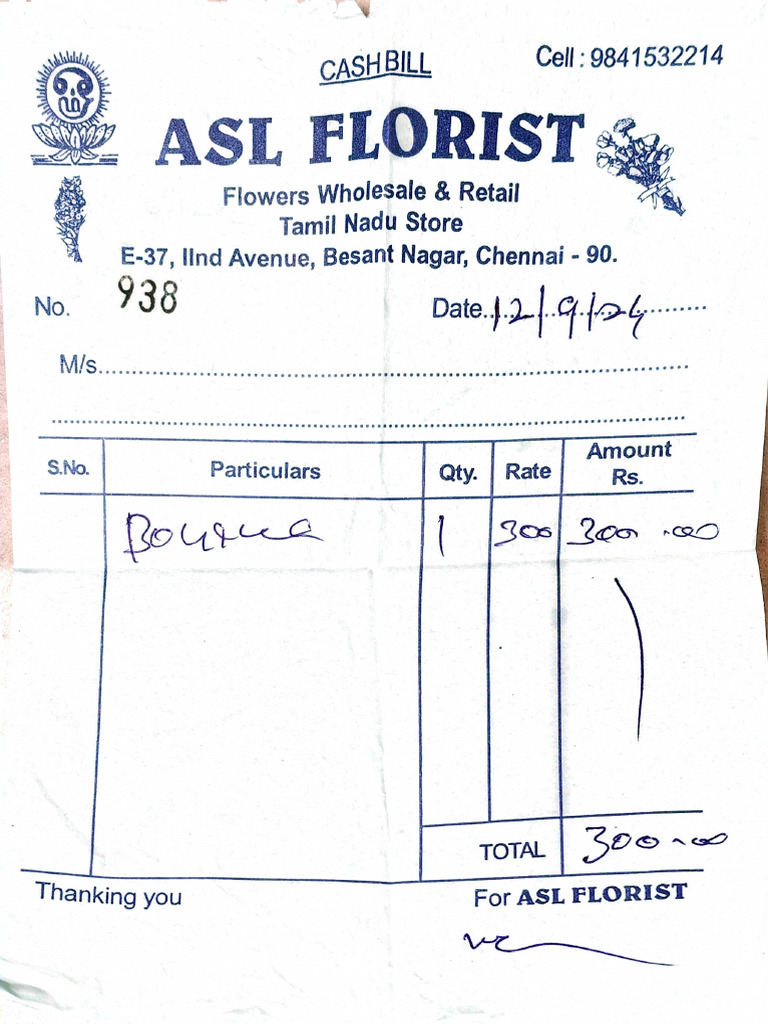 CASH BILL
Cell : 9841532214
ASL FLORIST
Flowers Wholesale & Retail
Tamil Nadu Store
E-37, IInd Avenue, Besant Nagar, Chennai - 90.
No. 938 Date. 12/9/24
M/s.
S.No. Particulars Qty. Rate Amount Rs.
1 300 300.00
TOTAL 300.00
Thanking you For ASL FLORIST